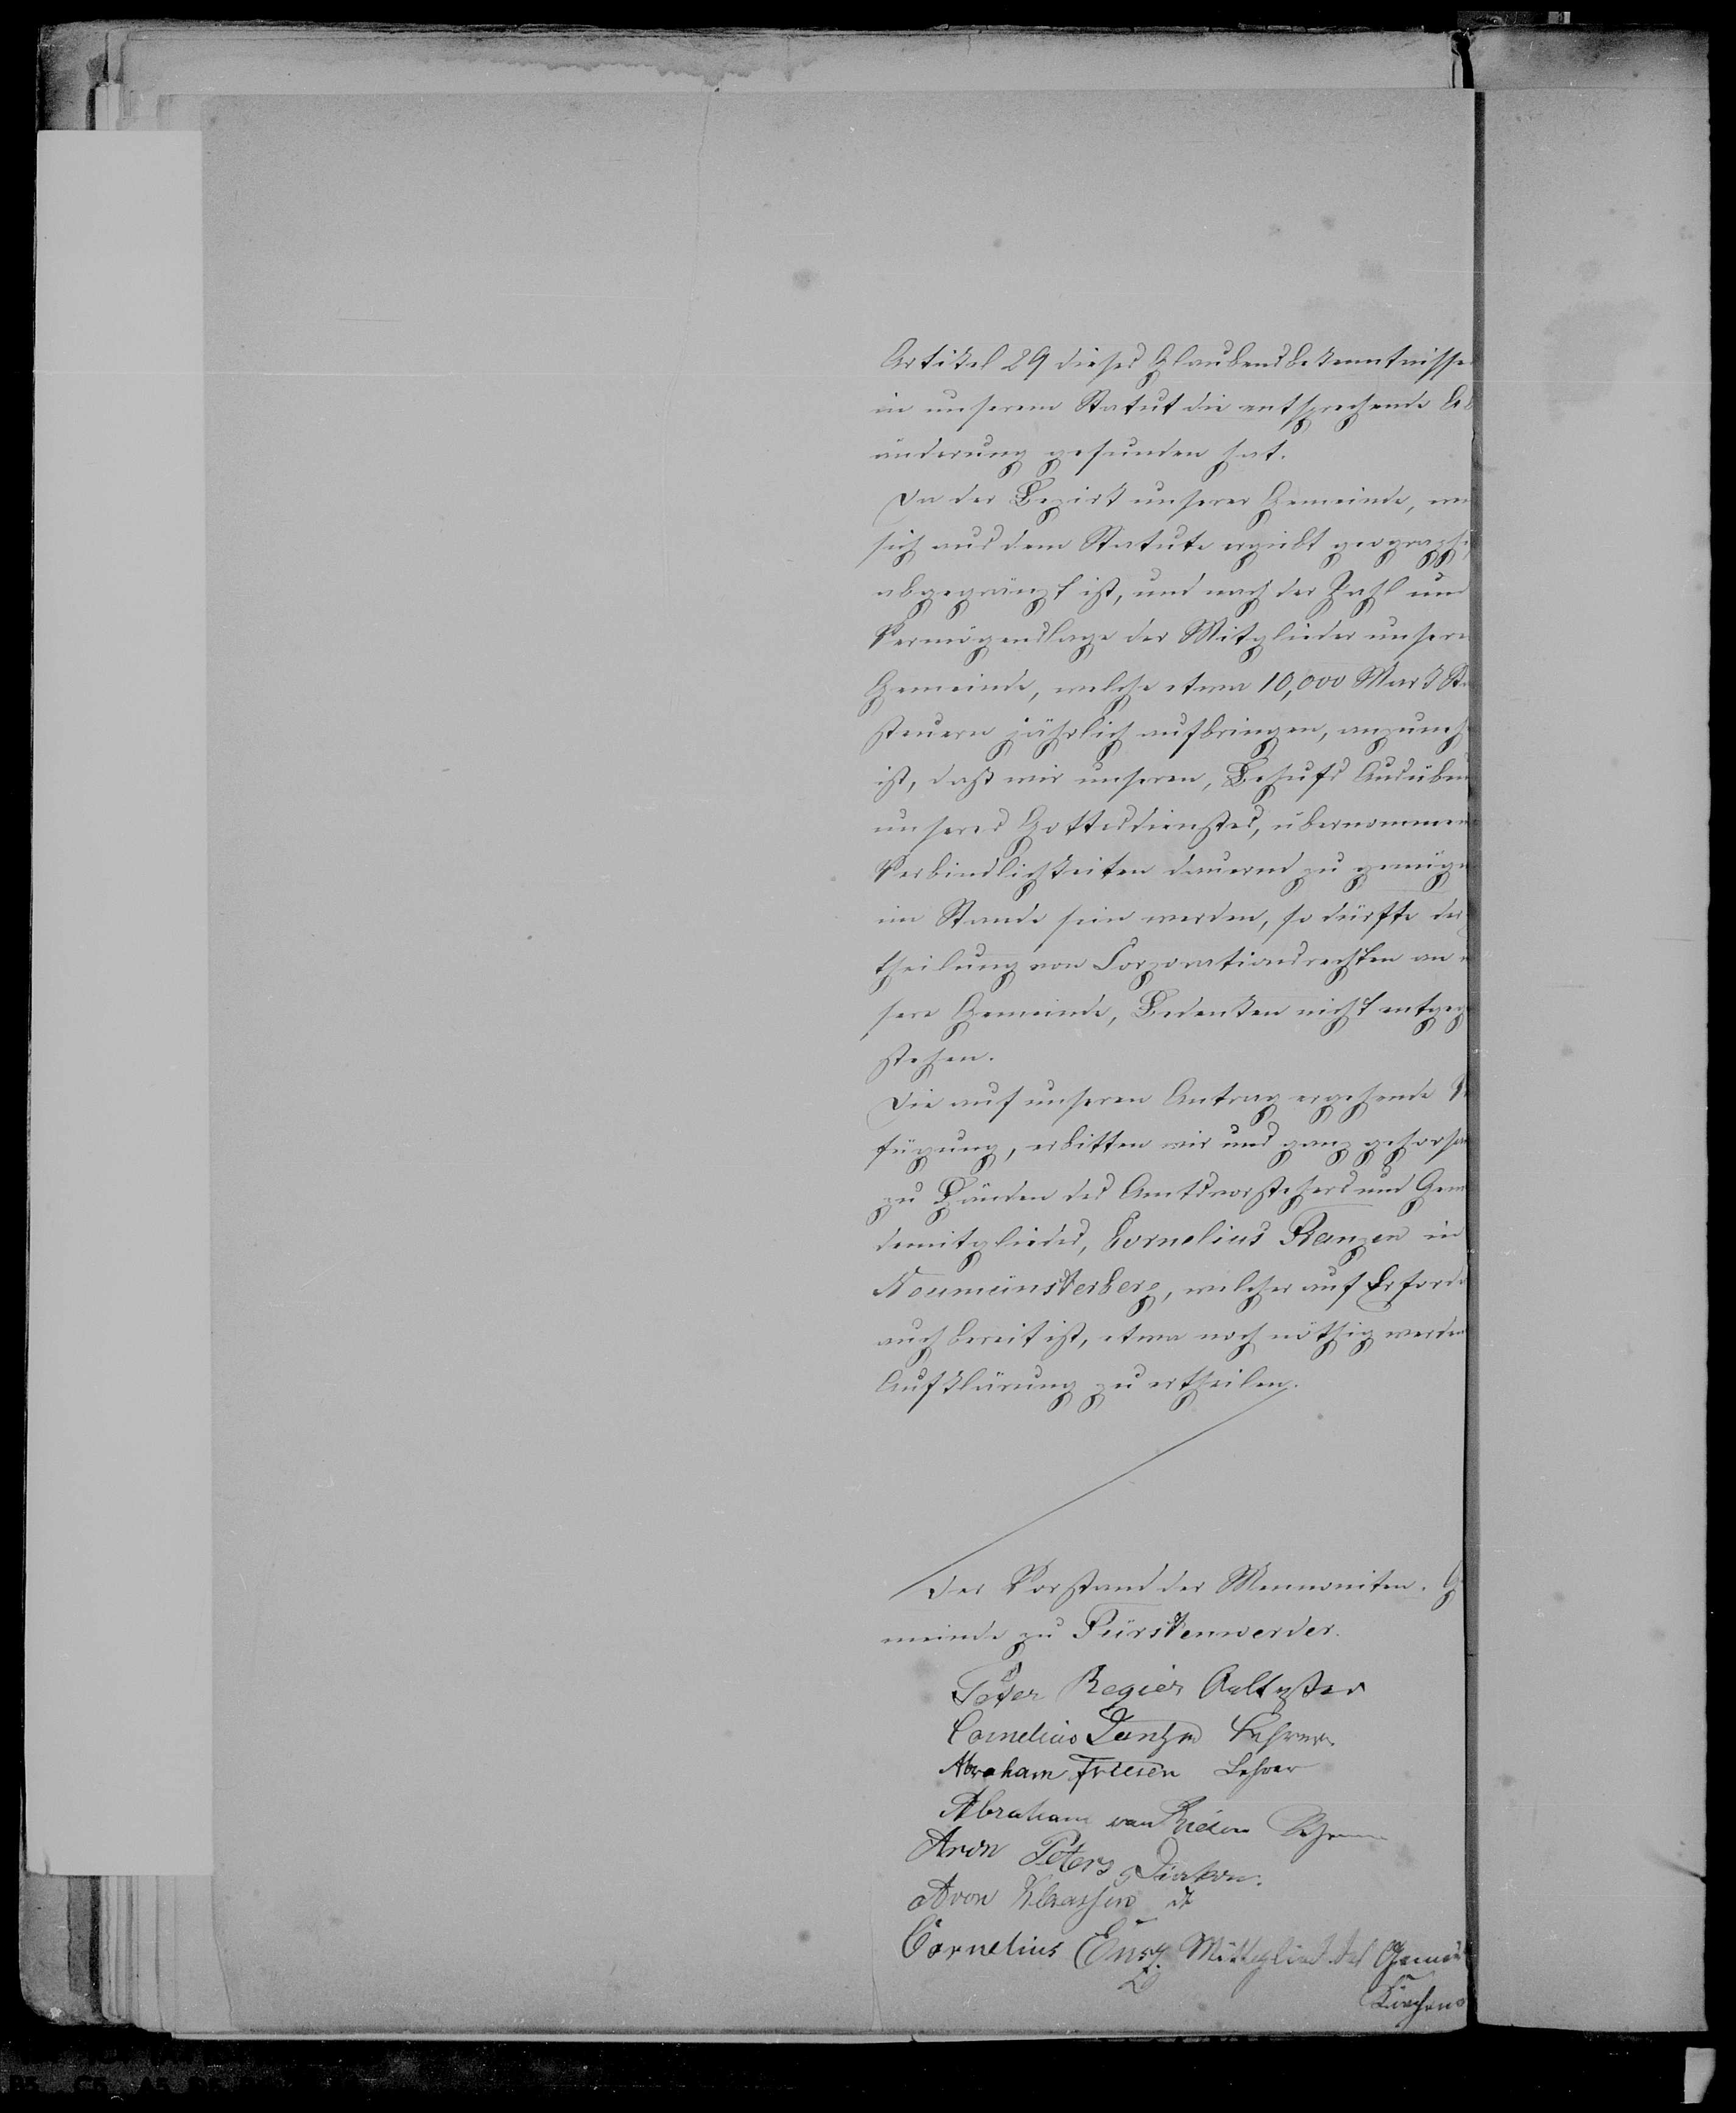 Artikel 29 dieses Glaubensbekenntnisses
in unserem Statut die entsprechende Ab
änderung gefunden hat.
Da der Bezirk unserer Gemeinde, wie
sich aus dem Statute ergiebt geographi
abgegränzt ist, und nach der Zahl und
Vermögenslage der Mitglieder unserer
Gemeinde, welche etwa 10,000 Mark Sta
steuern jährlich aufbringen, anzuneh
ist, daß wir unseren, Behufs Ausübun
unseres Gottesdienstes, übernommene
Verbindlichkeiten dauernd zu genüge
im Stande sein werden, so dürfte der
theilung von Corporationsrechten an u
sere Gemeinde, Bedenken nicht entgege
stehen.
Die auf unseren Antrag ergehende Ve
fügung, erbitten wir uns ganz gehorsa
zu Händen des Amtsvorstehers und Gem
demitgliedes, Cornelius Franzen in
Neumünsterberg, welcher auf Erforde
auch bereit ist, etwa noch nöthig werden
Aufklärung zu ertheilen.
Der Vorstand der Mennoniten. Ge
meinde zu Fürstenwerder.
Peter Regier Aeltester
Cornelius Dantzen Lehrer
Abraham Friesen Lehrer
Abraham van Riesen Lehrer
Aron Peters Diakon.
Aron Klaassen dt
Cornelius Ensz Mitteglied des Gemei
Kirchen